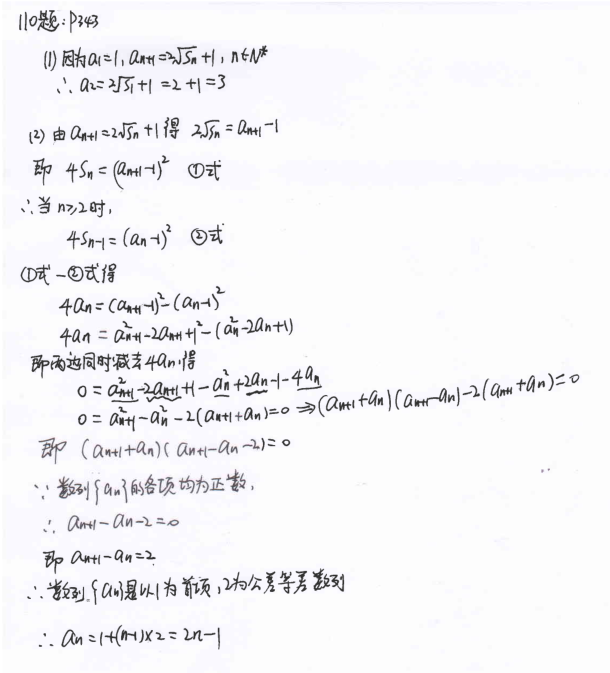 110题:P343
(1) 因为a₁=1, aₙ₊₁=2√Sₙ+1, n∈N*
∴ a₂=2√S₁+1=2+1=3
(2) 由aₙ₊₁=2√Sₙ+1得 2√Sₙ=aₙ₊₁-1
即 4Sₙ=(aₙ₊₁-1)² ①式
∴当n≥2时,
4Sₙ₋₁=(aₙ-1)² ②式
①式-②式得
4aₙ=(aₙ₊₁-1)²-(aₙ-1)²
4aₙ=a²ₙ₊₁-2aₙ₊₁+1²-(a²ₙ-2aₙ+1)
即两边同时减去4aₙ得
0=a²ₙ₊₁-2aₙ₊₁+1-a²ₙ+2aₙ-1-4aₙ
0=a²ₙ₊₁-a²ₙ-2(aₙ₊₁+aₙ)=0⇒(aₙ₊₁+aₙ)(aₙ₊₁-aₙ)-2(aₙ₊₁+aₙ)=0
即 (aₙ₊₁+aₙ)(aₙ₊₁-aₙ-2)=0
∵数列{aₙ}的各项均为正数,
∴ aₙ₊₁-aₙ-2=0
即 aₙ₊₁-aₙ=2
∴数列{aₙ}是以1为首项,2为公差等差数列
∴ aₙ=1+(n-1)×2=2n-1